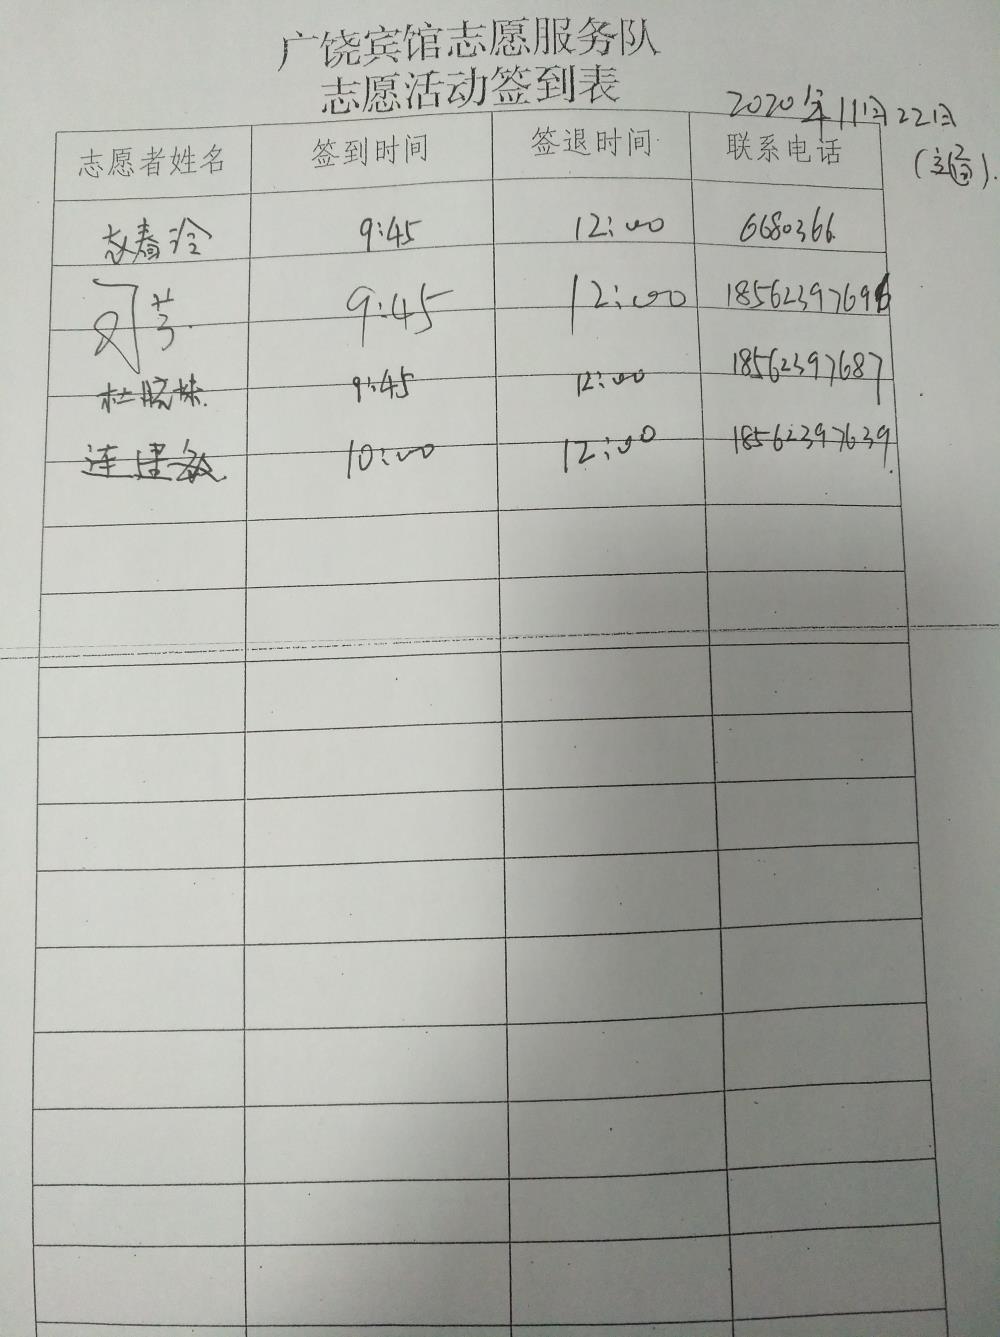 广饶宾馆志愿服务队
志愿活动签到表
2020年11月22日
志愿者姓名 签到时间 签退时间 联系电话
(交通).
赵春冷 9:45 12:00 6680366
刘芳 9:45 12:00 18562397696
杜晓妹 9:45 12:00 18562397687
连建敏 10:00 12:00 18562397639